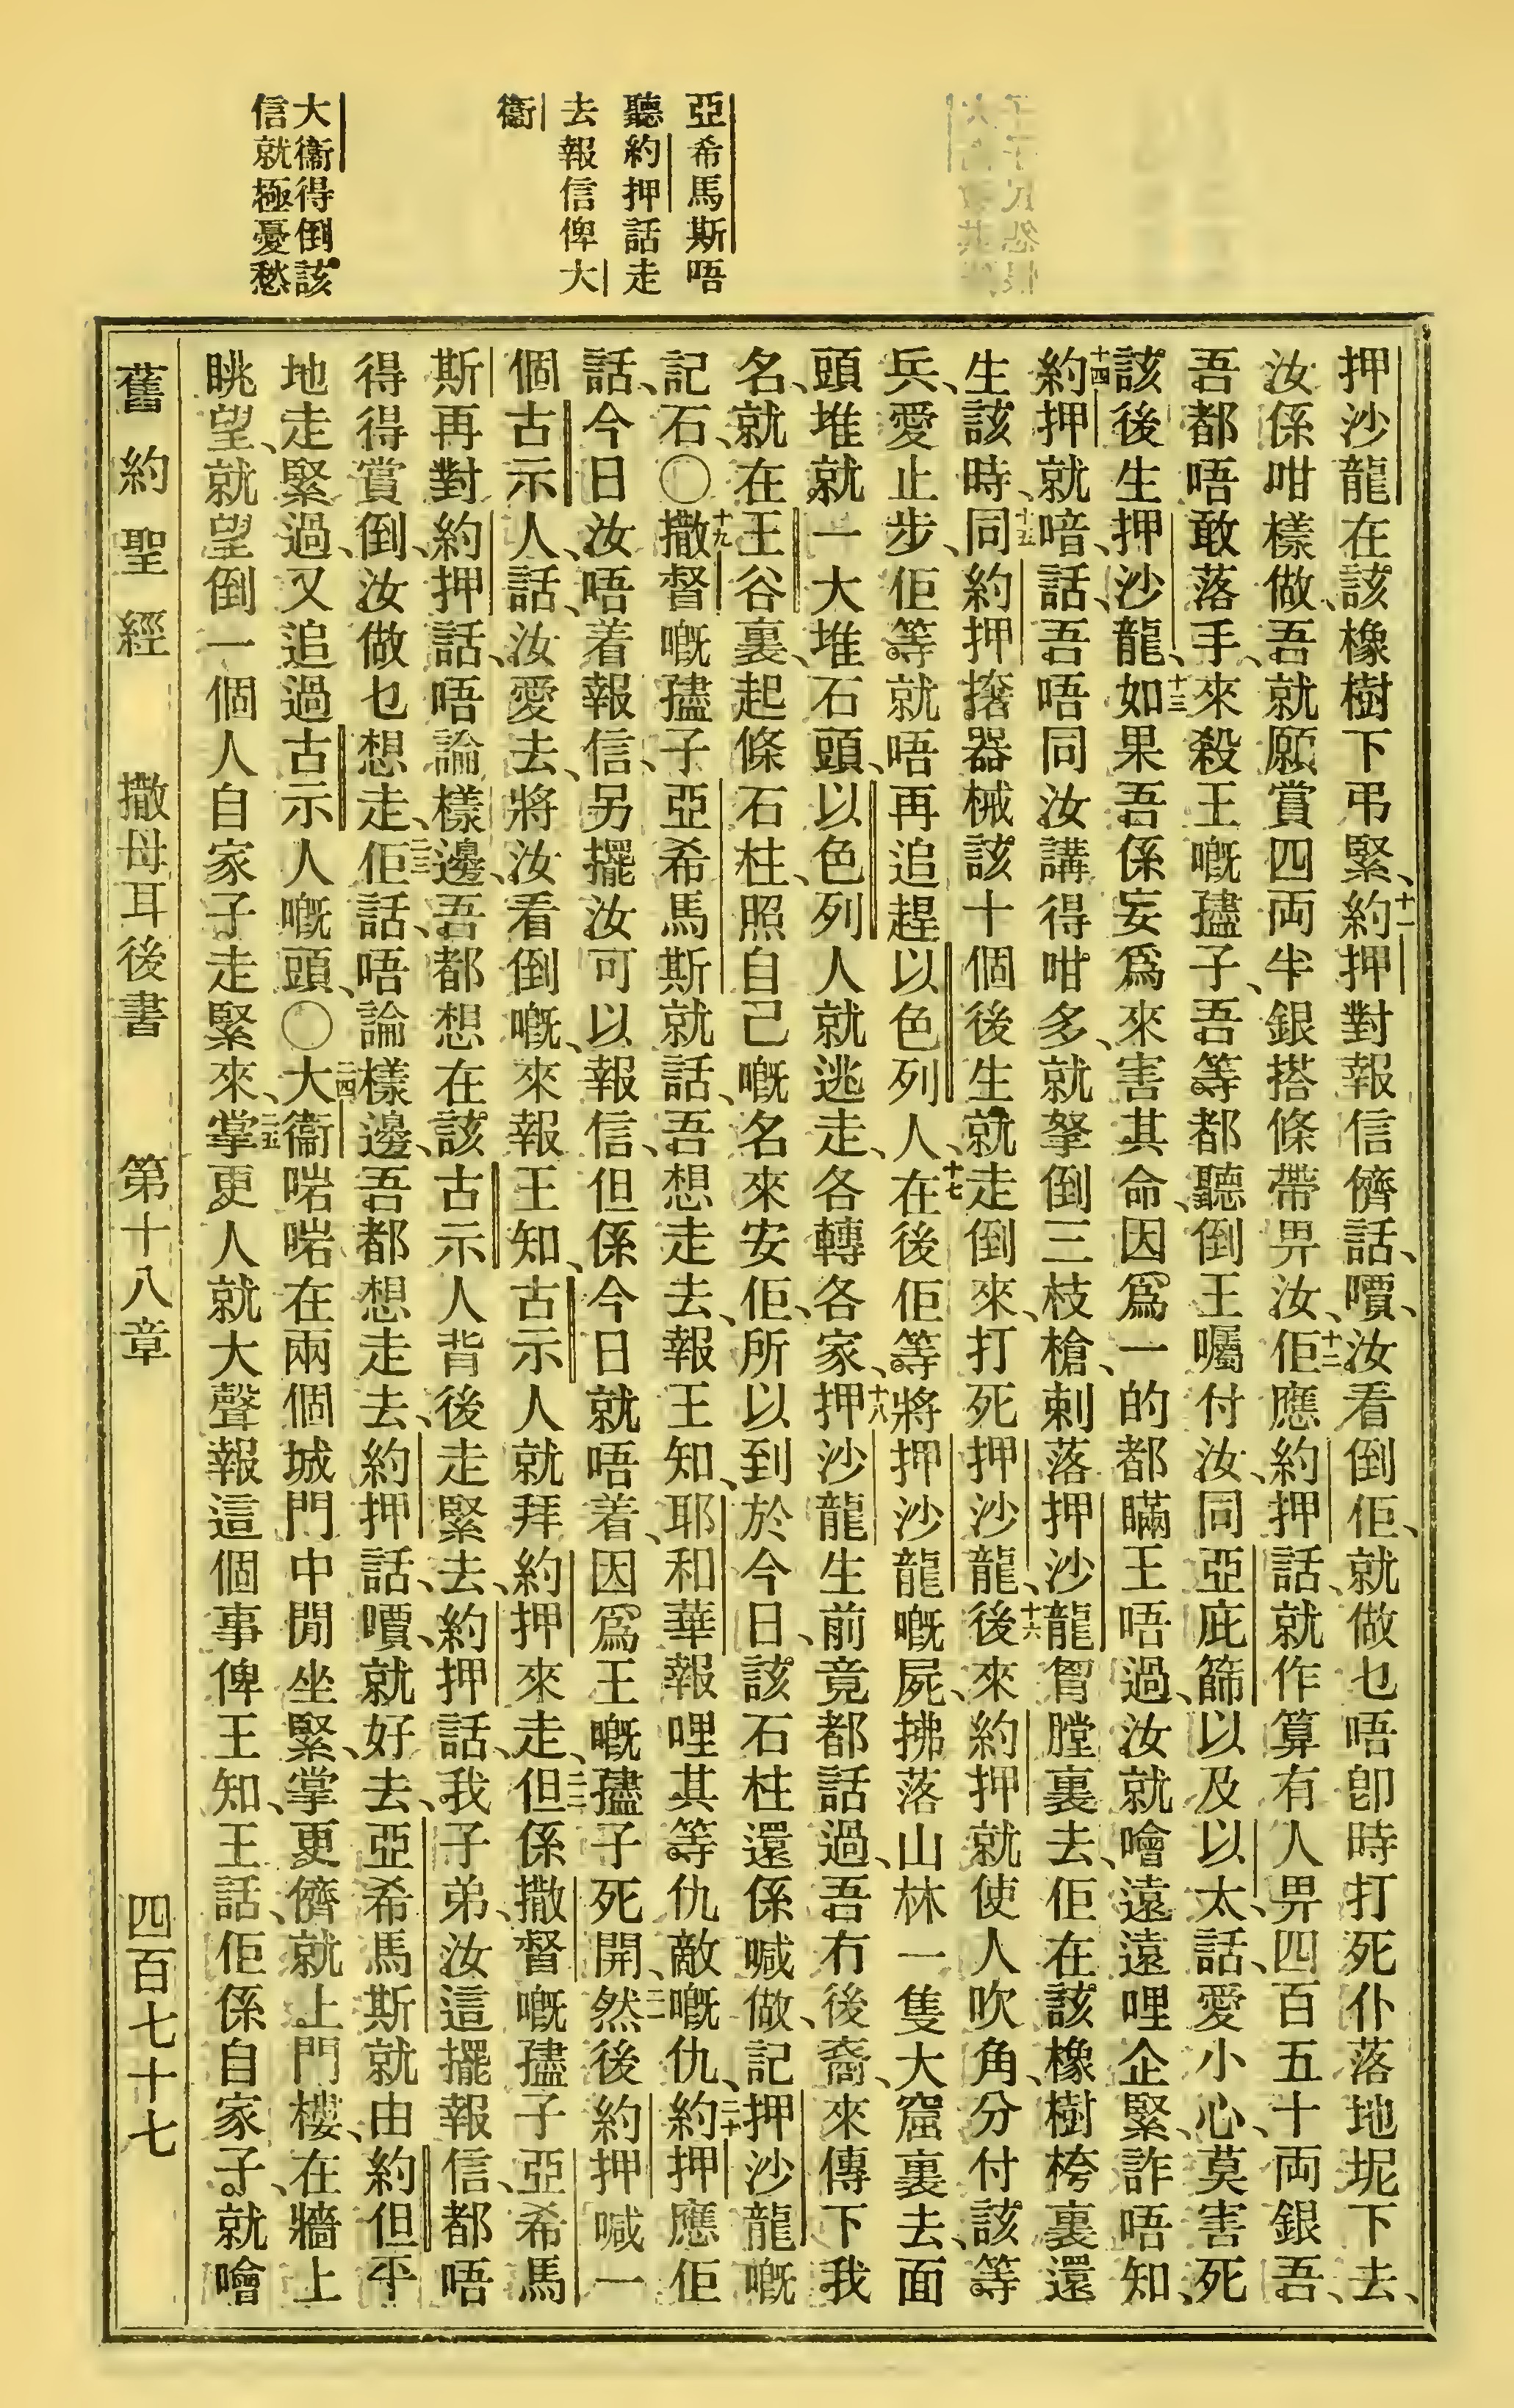 亞希馬斯唔
聽約押話走
去報信俾大
衞
大衞得倒該
信就極憂愁
押沙龍在該橡樹下弔緊、十一約押對報信儕話、嘪、汝看倒佢、就做乜唔卽時打死仆落地坭下去、
汝係咁樣做、吾就願賞四両半銀搭條帶畀汝、十二佢應約押話、就作算有人畀四百五十両銀吾、
吾都唔敢落手、來殺王嘅孻子、吾等都聽倒王囑付汝、同亞庇篩以及以太話、愛小心、莫害死
該後生押沙龍、十三如果吾係妄爲來害其命、因爲一的都瞞王唔過、汝就噲遠遠哩企緊、詐唔知、
十四約押就喑、話、吾唔同汝講得咁多、就拏倒三枝槍、刺落押沙龍胷膛裏去、佢在該橡樹桍裏還
生該時、十五同約押揝器械該十個後生、就走倒來、打死押沙龍、十六後來約押就使人吹角、分付該等
兵、愛止步、佢等就唔再追趕以色列人、十七在後佢等將押沙龍嘅屍、拂落山林一隻大窟裏去、面
頭堆就一大堆石頭、以色列人就逃走、各轉各家、十八押沙龍生前竟都話過、吾冇後裔、來傳下我
名、就在王谷裏、起條石柱、照自己嘅名來安佢、所以到於今日、該石柱還係喊做、記押沙龍嘅
記石、〇十九撒督嘅孻子亞希馬斯就話、吾想走去、報王知、耶和華報哩其等仇敵嘅仇、二十約押應佢
話、今日汝唔着報信、另擺汝可以報信、但係今日就唔着、因爲王嘅孻子死開、二一然後約押喊一
個古示人、話、汝愛去、將汝看倒嘅、來報王知、古示人就拜約押來走、二二但係撒督嘅孻子亞希馬
斯再對約押話、唔論樣邊、吾都想在該古示人背後走緊去、約押話、我子弟、汝這擺報信、都唔
得得賞倒、汝做乜想走、二三佢話、唔論樣邊、吾都想走去、約押話、嘪、就好去、亞希馬斯就由約但平
地走緊過、又追過古示人嘅頭、〇二四大衞啱啱在兩個城門中間坐緊、掌更儕就上門樓、在牆上
眺望、就望倒一個人自家子走緊來、二五掌更人就大聲報這個事俾王知、王話、佢係自家子、就噲
舊約聖經　撒母耳後書　第十八章　四百七十七